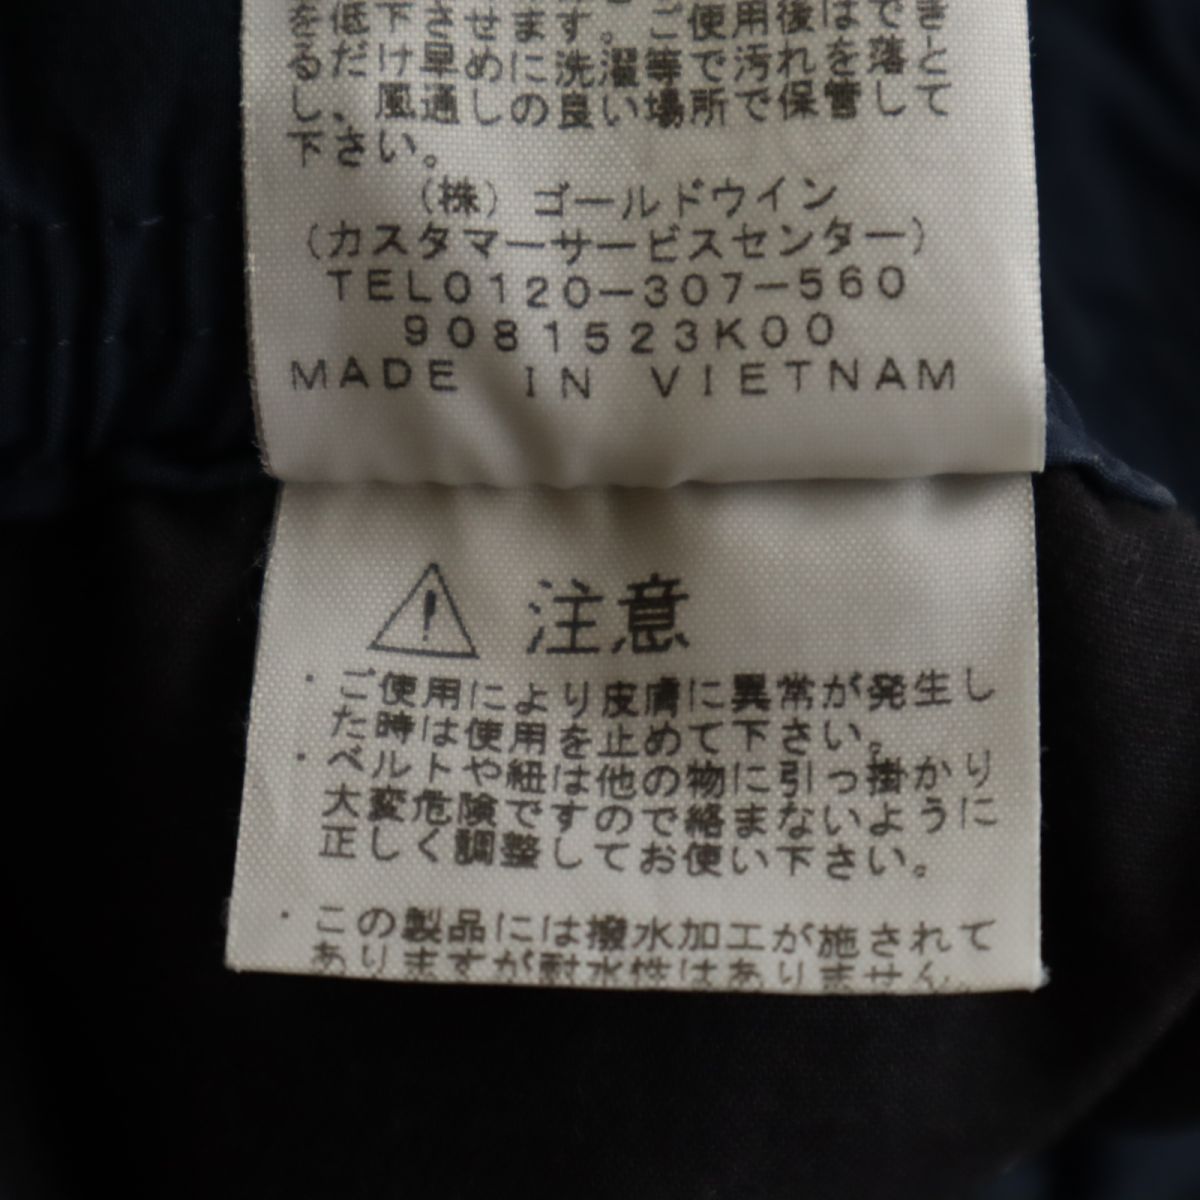 を低下させます。ご使用後はでき
るだけ早めに洗濯等で汚れを落と
し、風通しの良い場所で保管して
下さい。
(株)ゴールドウイン
(カスタマーサービスセンター)
TEL0120-307-560
9081523K00
MADE IN VIETNAM
注意
・ご使用により皮膚に異常が発生し
た時は使用を止めて下さい。
・ベルトや紐は他の物に引っ掛かり
大変危険ですので絡まないように
正しく調整してお使い下さい。
・この製品には撥水加工が施されて
ありますが耐水性はありません。